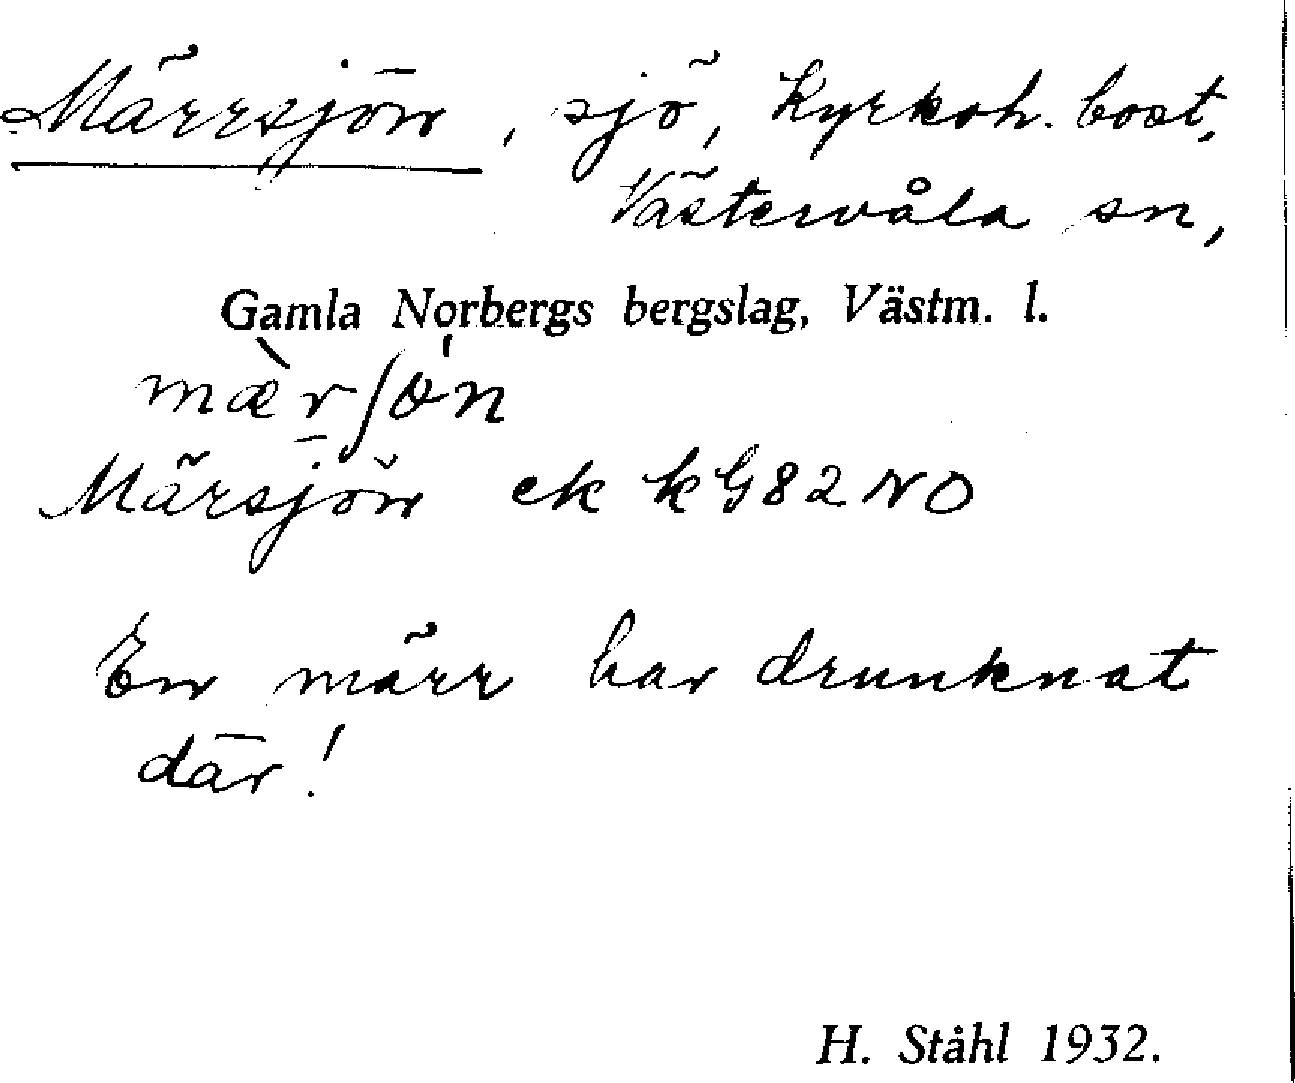 Märrsjön, sjö, Kyrkoh. bost.
Västervåla sn,
Gamla Norbergs bergslag, Västm. l.
mær̠ʃön
Märsjön ek kG82NO
En märr har drunknat
där!
H. Ståhl 1932.